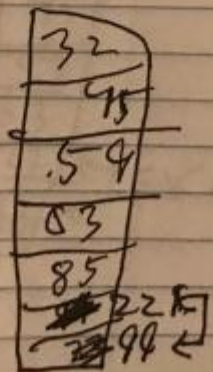 32
45
.54
03
85
22
94